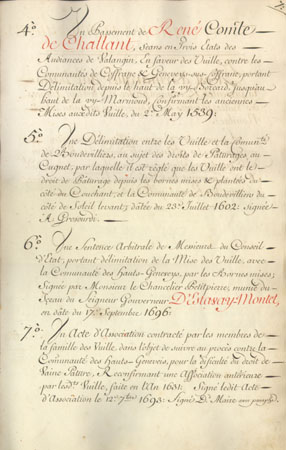 4.° Un Passement de René Comte
de Challant, séans en Trois Etats des
Audiances de Valangin, En faveur des Vuille, contre les
Communautés de Coffrane & Geneveys-sus-Coffrane; portant
Délimitation depuis le haut de la
haut de la vy-Marnoud, confirmant les anciennes
Mises auxdits Vuille, du 2.e May 1539:
5.° Une Délimitation entre les Vuille et la commun.té
de Boudevilliers, au sujet des droits de Paturages, au
Cuquet, par laquelle il est réglé que les Vuille ont le
droit de Paturage depuis les bornes mises & plantées du
côté du Couchant; et la Communauté de Boudevilliers du
côté de Soleil levant; dâtée du 23.e Juillet 1602: Signée
6.° Une Sentence Arbitrale de Messieurs du Conseil
d'Etat, portant délimitation de la Mise des Vuille, avec
la Communauté des Hauts-Geneveys, par les Bornes mises;
Signée par Monsieur le Chancelier Petitpierre, munie du
Sceau du Seigneur Gouverneur D'Estavay-Montet,
en dâte du 17.e Septembre 1696:
7.° Un Acte d'Association contracté par les membres de
la famille des Vuille, dans l'objet de suivre au procès contre la
Communauté des Hauts-Geneveis, pour la dificulté du droit de
Vaine Pâture, & reconfirmant une Association antérieure
par lesd.ts Vuille, faite en l'An 1651: Signé ledit Acte
d'Association le 12.e 7bre 1693: Signé D. Maire